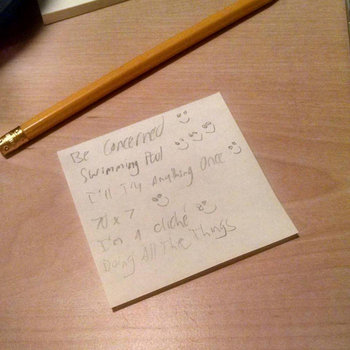 Be Concerned
Swimming Pool
I'll Try Anything Once
70 x 7
I'm A cliché
Doing All The Things